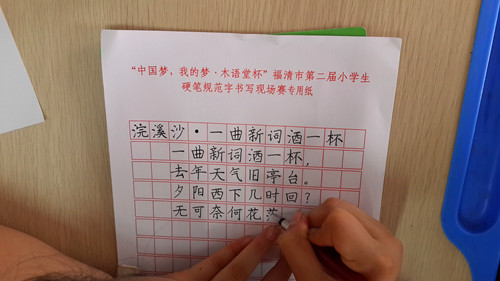 “中国梦，我的梦·木语堂杯”福清市第二届小学生
硬笔规范字书写现场赛专用纸
浣溪沙·一曲新词酒一杯
一曲新词酒一杯，
去年天气旧亭台。
夕阳西下几时回？
无可奈何花